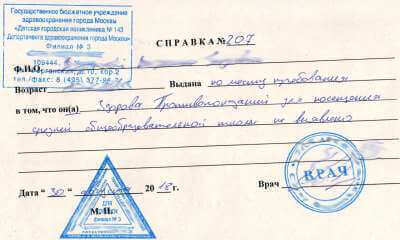 Государственное бюджетное учреждение
здравоохранения города Москвы
«Детская городская поликлиника № 143
Департамента здравоохранения города Москвы»
Филиал № 3
109444, кор.2
тел./факс: 8 (495) 377-96-
СПРАВКА № 207
Ф.И.О.
Возраст Выдана по месту требования
в том, что он(а) Здорова. Противопоказаний для посещения
средней общеобразовательной школы не выявлено
Дата " 30 " 2018 г. Врач
ВРАЧ
ДЛЯ
Филиал № 3
М.П.